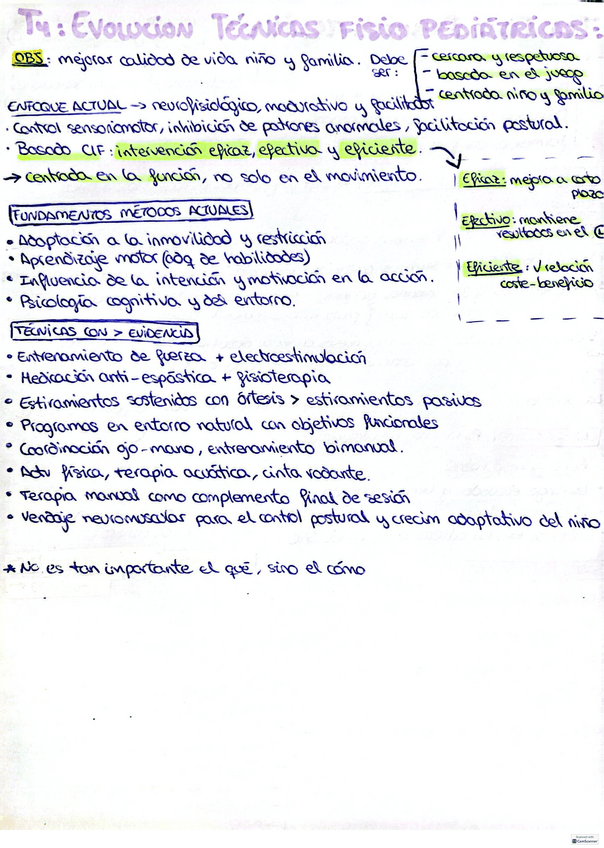 T4: EVOLUCION TÉCNICAS FISIO PEDIÁTRICAS:
OBJ: mejorar calidad de vida niño y familia. Debe ser:
- cercana y respetuosa
- basada en el juego
- centrada niño y familia
ENFOQUE ACTUAL → neurofisiológico, madurativo y facilitador
· Control sensoriomotor, inhibición de patrones anormales, facilitación postural.
· Basado CIF: intervención eficaz, efectiva y eficiente.
→ centrada en la función, no solo en el movimiento.
Eficaz: mejora a corto
plazo
Efectivo: mantiene
resultados en el
Eficiente: √ relación
coste-beneficio
FUNDAMENTOS MÉTODOS ACTUALES
• Adaptación a la inmovilidad y restricción
• Aprendizaje motor (adq de habilidades)
• Influencia de la intención y motivación en la acción.
• Psicología cognitiva y des entorno.
TÉCNICAS CON > EVIDENCIA
• Entrenamiento de fuerza + electroestimulación
• Medicación anti-espástica + fisioterapia
• Estiramientos sostenidos con órtesis > estiramientos pasivos
• Programas en entorno natural con objetivos funcionales
• Coordinación ojo-mano, entrenamiento bimanual.
• Actv física, terapia acuática, cinta rodante.
• Terapia manual como complemento final de sesión
• Vendaje neuromuscular para el control postural y crecim adaptativo del niño
* No es tan importante el qué, sino el cómo
CamScanner